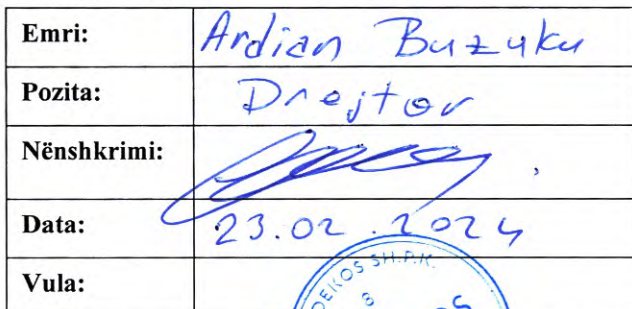 Emri: Ardian Buzuku
Pozita: Drejtor
Nënshkrimi:
Data: 23.02.2024
Vula:
SH.P.K.